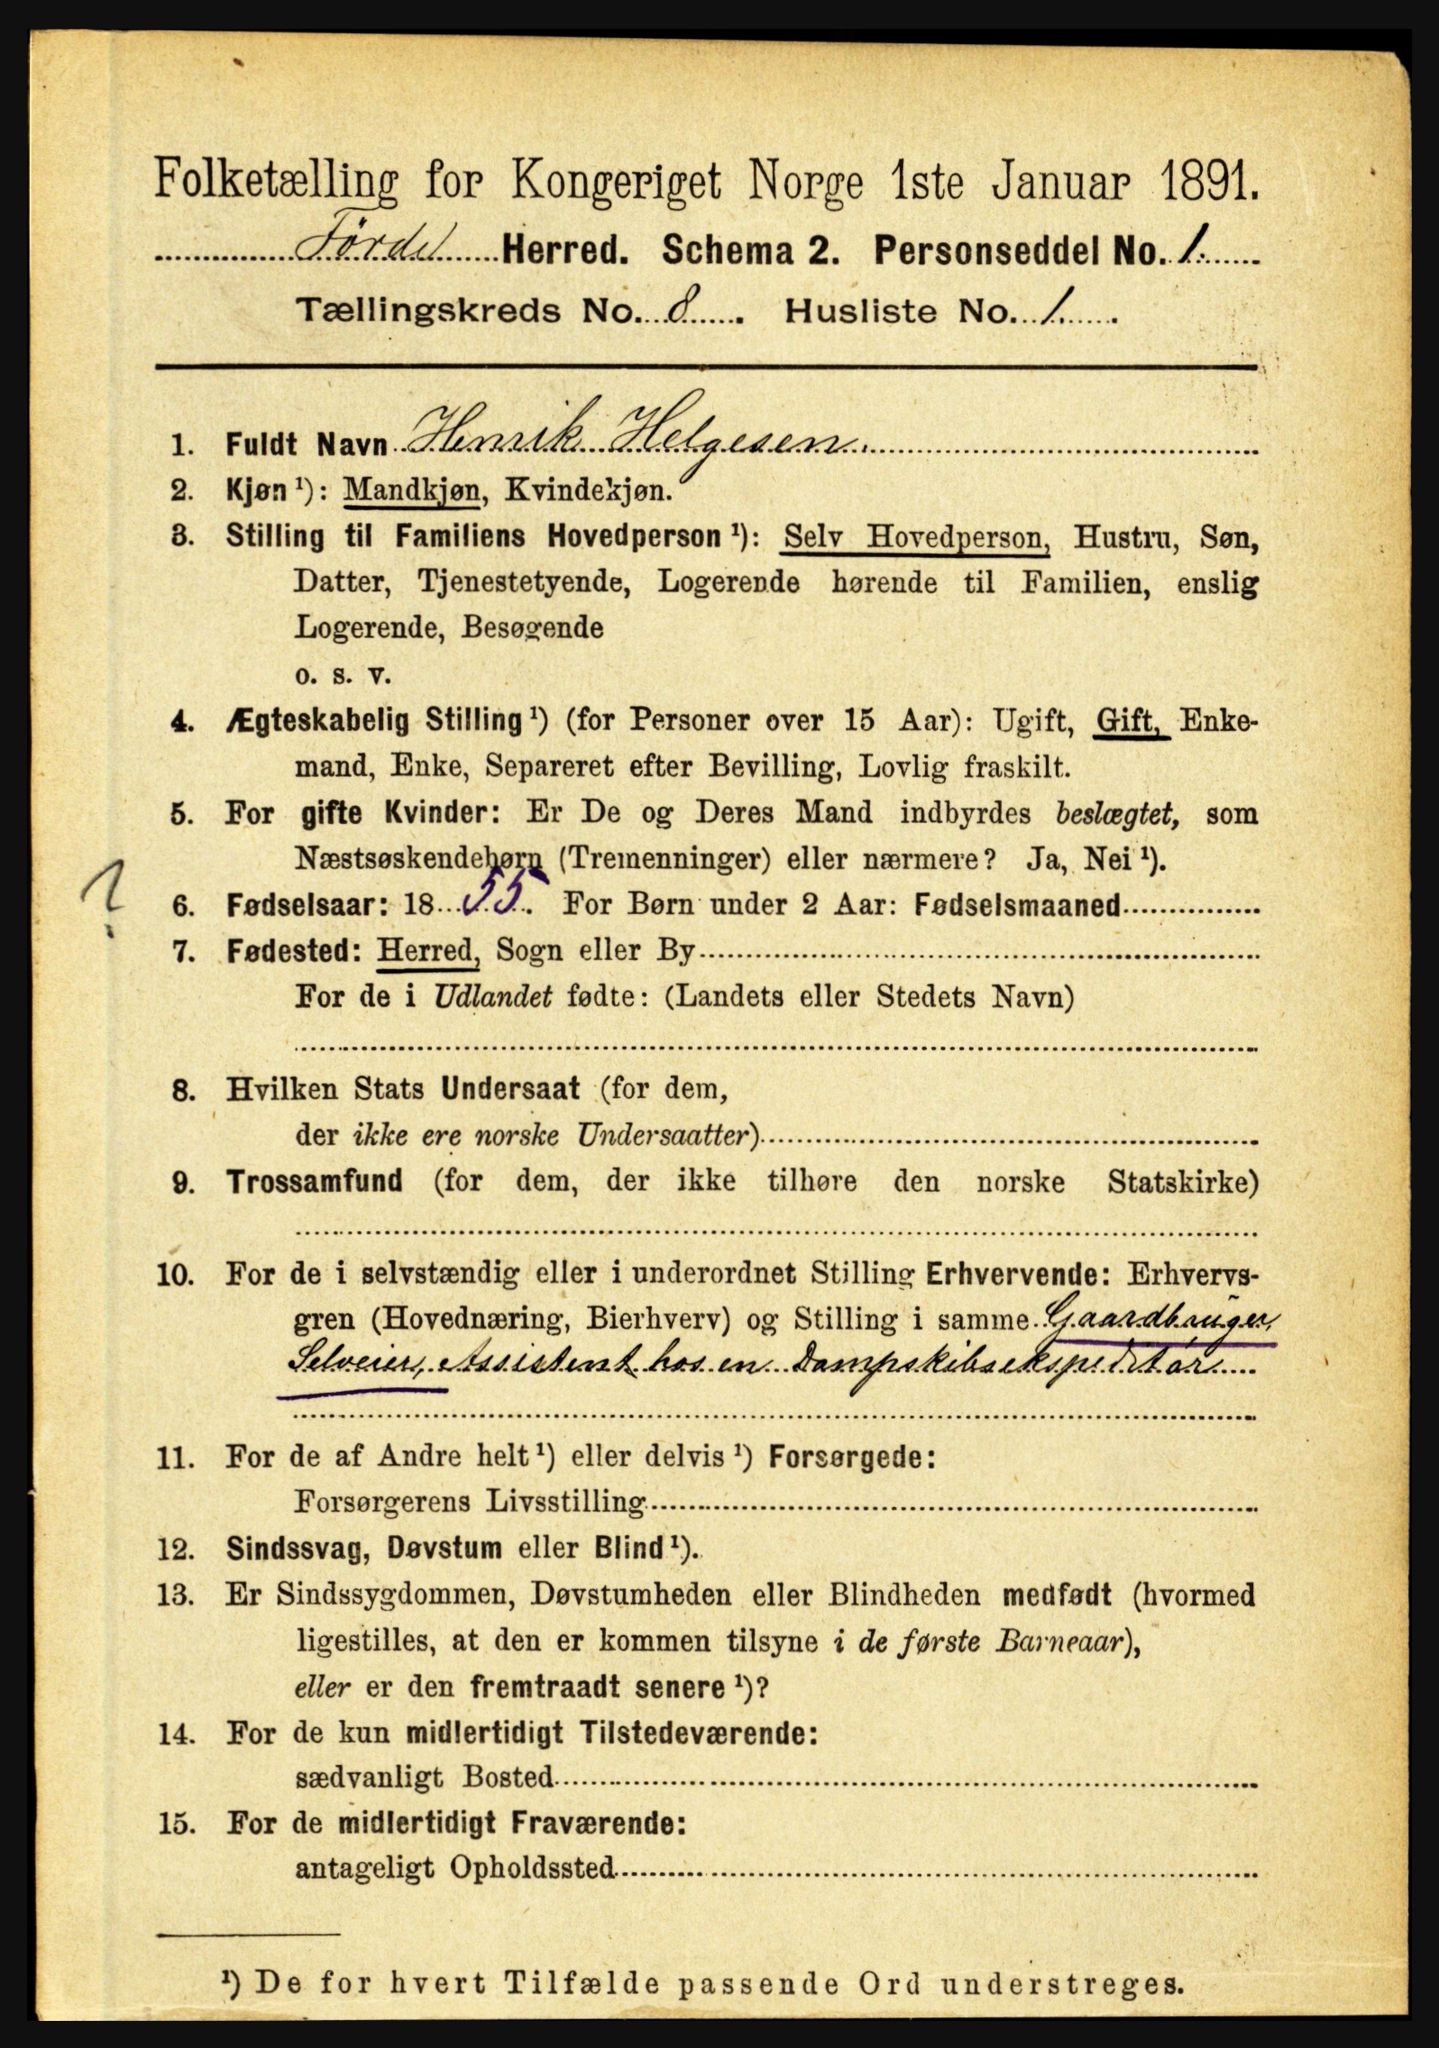 Folketælling for Kongeriget Norge 1ste Januar 1891.
Førde Herred. Schema 2. Personseddel No. 1.
Tællingskreds No. 8. Husliste No. 1.
1. Fuldt Navn Henrik Helgesen.
2. Kjøn ¹): Mandkjøn, Kvindekjøn.
3. Stilling til Familiens Hovedperson ¹): Selv Hovedperson, Hustru, Søn,
Datter, Tjenestetyende, Logerende hørende til Familien, enslig
Logerende, Besøgende
o. s. v.
4. Ægteskabelig Stilling ¹) (for Personer over 15 Aar): Ugift, Gift, Enke-
mand, Enke, Separeret efter Bevilling, Lovlig fraskilt.
5. For gifte Kvinder: Er De og Deres Mand indbyrdes beslægtet, som
Næstsøskendebørn (Tremenninger) eller nærmere? Ja, Nei ¹).
?
6. Fødselsaar: 1855. For Børn under 2 Aar: Fødselsmaaned
7. Fødested: Herred, Sogn eller By
For de i Udlandet fødte: (Landets eller Stedets Navn)
8. Hvilken Stats Undersaat (for dem,
der ikke ere norske Undersaatter)
9. Trossamfund (for dem, der ikke tilhøre den norske Statskirke)
10. For de i selvstændig eller i underordnet Stilling Erhvervende: Erhvervs-
gren (Hovednæring, Bierhverv) og Stilling i samme Gaardbruger,
Selveier, Assistent hos en Dampskibsekspeditør
11. For de af Andre helt ¹) eller delvis ¹) Forsørgede:
Forsørgerens Livsstilling
12. Sindssvag, Døvstum eller Blind ¹).
13. Er Sindssygdommen, Døvstumheden eller Blindheden medfødt (hvormed
ligestilles, at den er kommen tilsyne i de første Barneaar),
eller er den fremtraadt senere ¹)?
14. For de kun midlertidigt Tilstedeværende:
sædvanligt Bosted
15. For de midlertidigt Fraværende:
antageligt Opholdssted
¹) De for hvert Tilfælde passende Ord understreges.